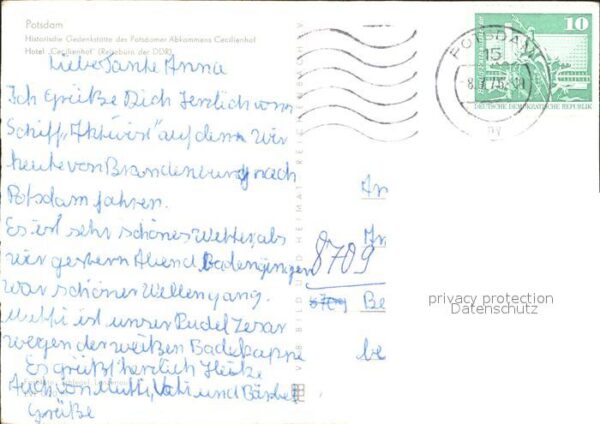 Potsdam
Historische Gedenkstätte des Potsdamer Abkommens Cecilienhof
Hotel "Cecilienhof" (Reisebüro der DDR)
Liebe Tante Anna
Ich Grüße Dich Herzlich vom
Schiff „Aktivist" auf dem wir
heute von Brandenburg nach
Potsdam fahren.
Es ist sehr schönes Wetter, als
wir gestern Abend Baden gingen
war schöner Wellengang.
Mutti ist unser Rudel
wegen der weißen Badekappe
Es grüßt herlich Heike
Auch von Mutti, Vati und Bärbel
Grüße
VEB BILD UND HEIMAT REICHENBACH
POTSDAM
15
10
DEUTSCHE DEMOKRATISCHE REPUBLIK
An
8709
Be
be
privacy protection
Datenschutz